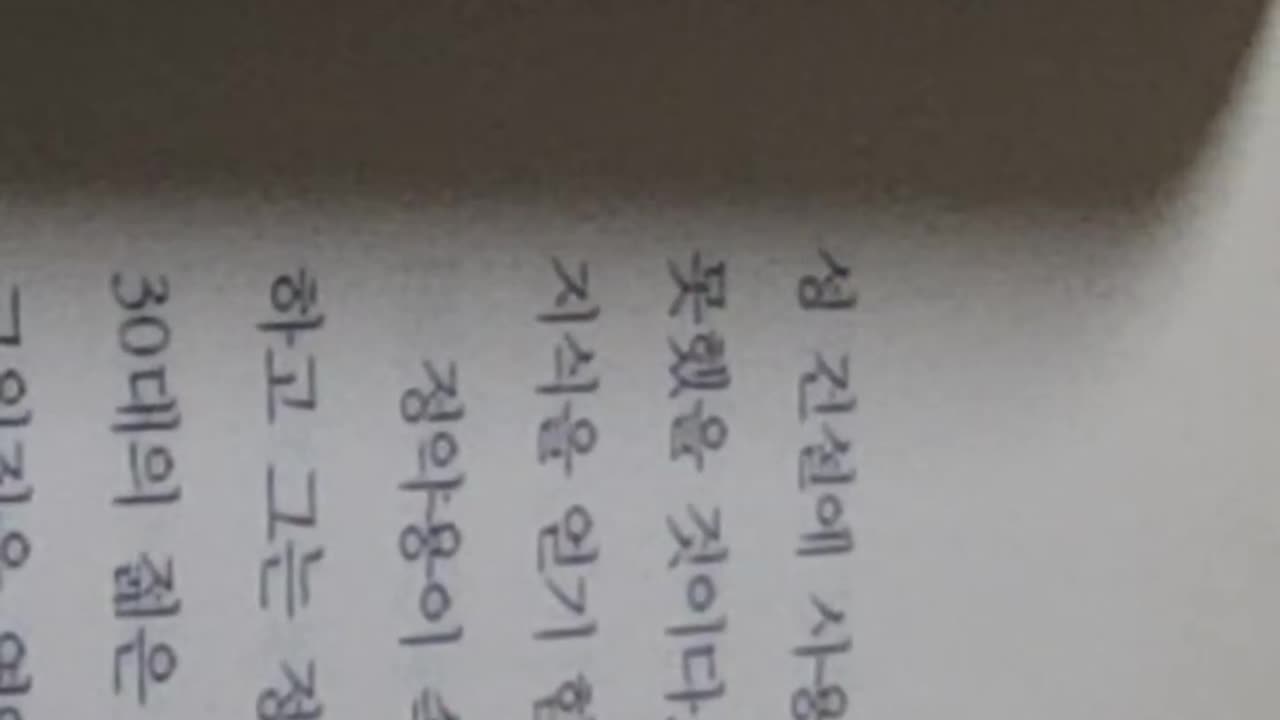 성 건설에 사용
못했을 것이다.
지식을 얻기
정약용이
하고 그는 정
30대의 젊은